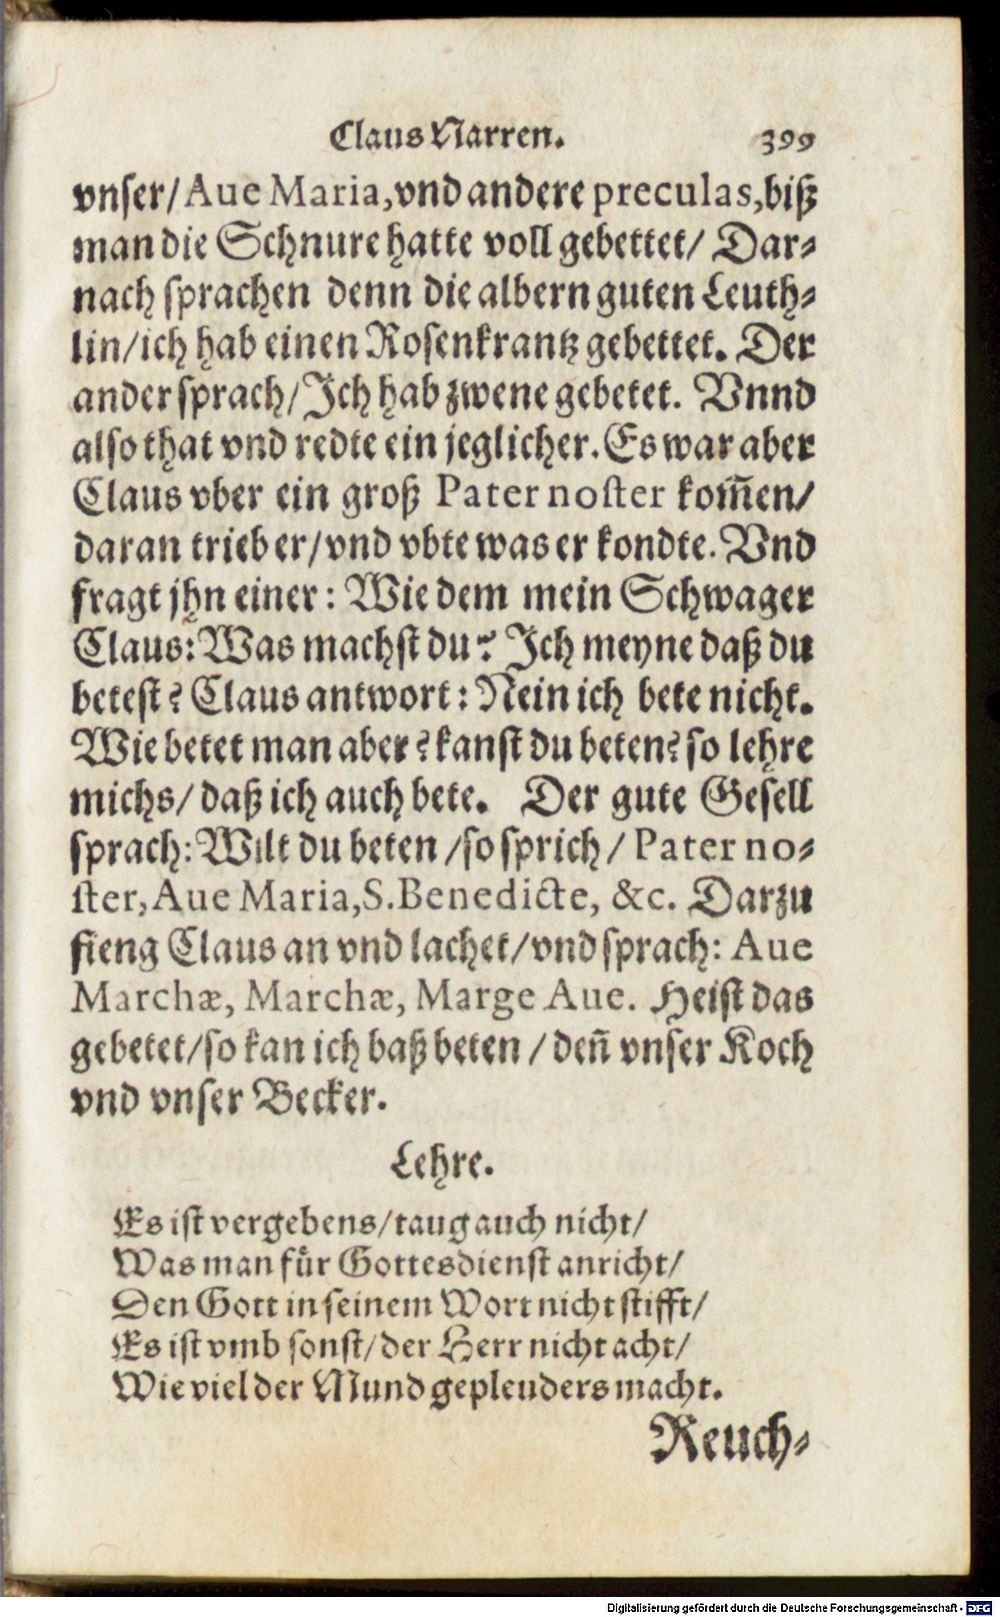 Claus Narren. 399
vnser/ Aue Maria, vnd andere preculas, biß
man die Schnure hatte voll gebettet/ Dar⸗
nach sprachen denn die albern guten Leuth⸗
lin/ich hab einen Rosenkrantz gebettet. Der
ander sprach/ Ich hab zwene gebetet. Vnnd
also that vnd redte ein jeglicher. Es war aber
Claus vber ein groß Pater noster kom̃en/
daran trieb er/vnd vbte was er kondte. Vnd
fragt jhn einer: Wie dem mein Schwager
Claus: Was machst du? Ich meyne daß du
betest? Claus antwort: Nein ich bete nicht.
Wie betet man aber? kanst du beten? so lehre
michs/ daß ich auch bete. Der gute Gesell
sprach: Wilt du beten /so sprich/ Pater no⸗
ster, Aue Maria, S. Benedicte, &c. Darzu
fieng Claus an vnd lachet/vnd sprach: Aue
Marchæ, Marchæ, Marge Aue. Heist das
gebetet/so kan ich baß beten / deñ vnser Koch
vnd vnser Becker.
Lehre.
Es ist vergebens/taug auch nicht/
Was man fuͤr Gottesdienst anricht/
Den Gott in seinem Wort nicht stifft/
Es ist vmb sonst/der Herr nicht acht/
Wie viel der Mund gepleuders macht.
Reuch⸗
Digitalisierung gefördert durch die Deutsche Forschungsgemeinschaft - DFG